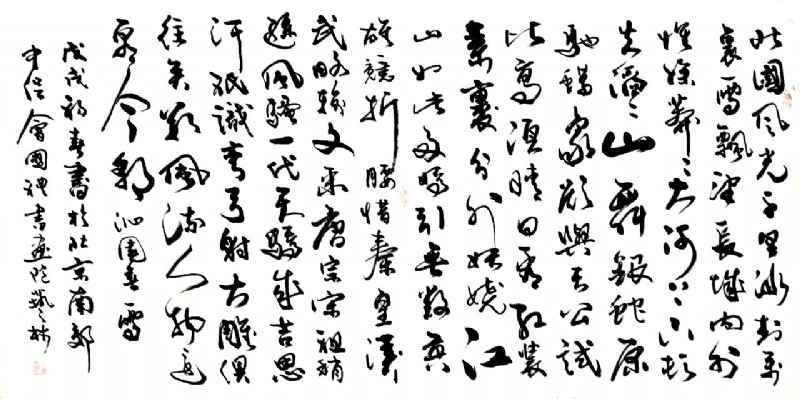 北國風光千里冰封萬
裏雪飄望長城內外
惟餘莽莽大河上下頓
失滔滔山舞銀蛇原
馳蠟象欲與天公試
比高須晴日看紅裝
素裹分外妖嬈江
山如此多嬌引無數英
雄競折腰惜秦皇漢
武略輸文采唐宗宋祖稍
遜風騷一代天驕成吉思
汗祇識彎弓射大雕俱
往矣數風流人物還
看今朝 沁園春雪
戊戌初春書於北京南郊
會國禮書畫院